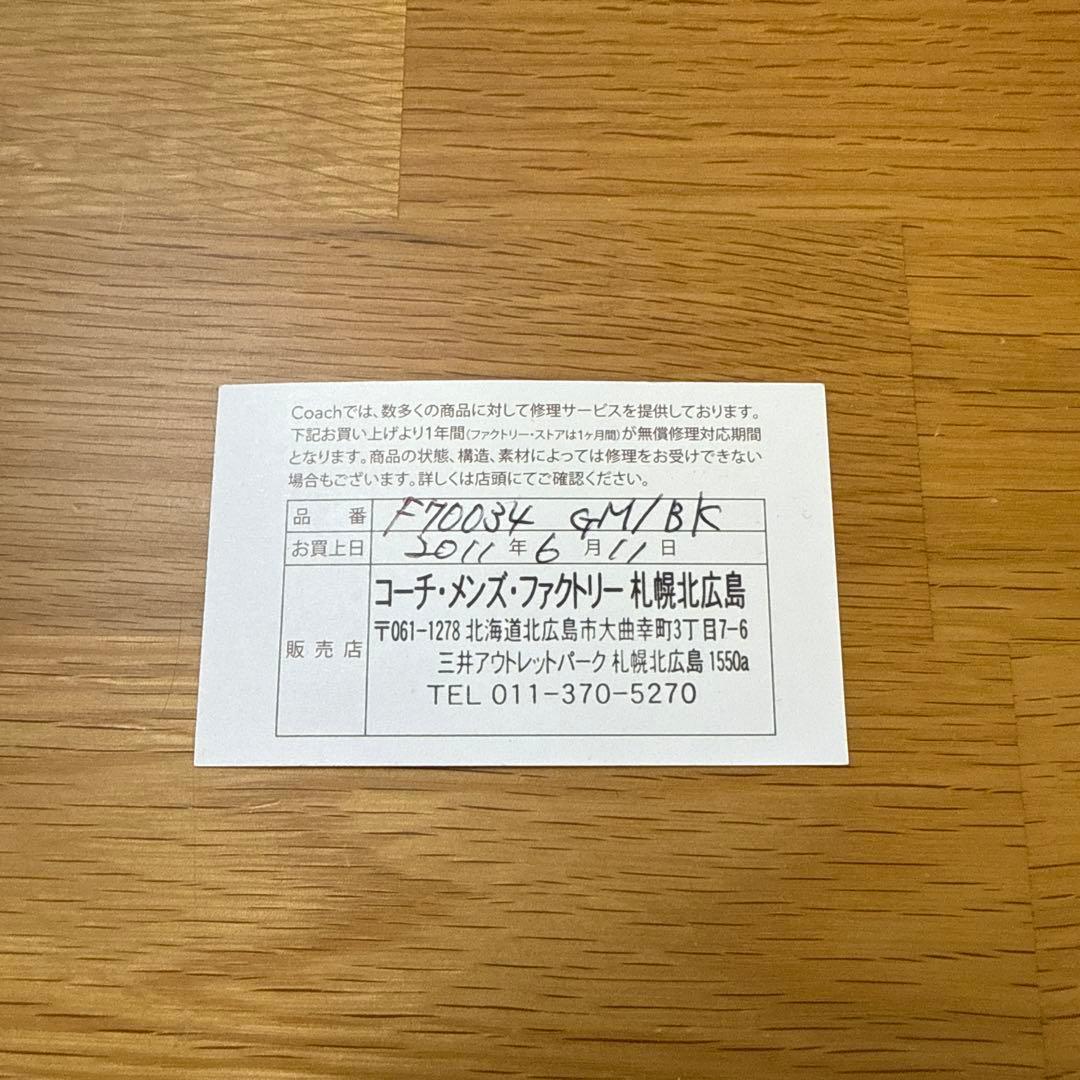 Coachでは、数多くの商品に対して修理サービスを提供しております。
下記お買い上げより1年間(ファクトリー・ストアは1ヶ月間)が無償修理対応期間
となります。商品の状態、構造、素材によっては修理をお受けできない
場合もございます。詳しくは店頭にてご確認ください。
品番 F70034 GM/BK
お買上日 2011年6月11日
販売店 コーチ・メンズ・ファクトリー 札幌北広島
〒061-1278 北海道北広島市大曲幸町3丁目7-6
三井アウトレットパーク 札幌北広島 1550a
TEL 011-370-5270